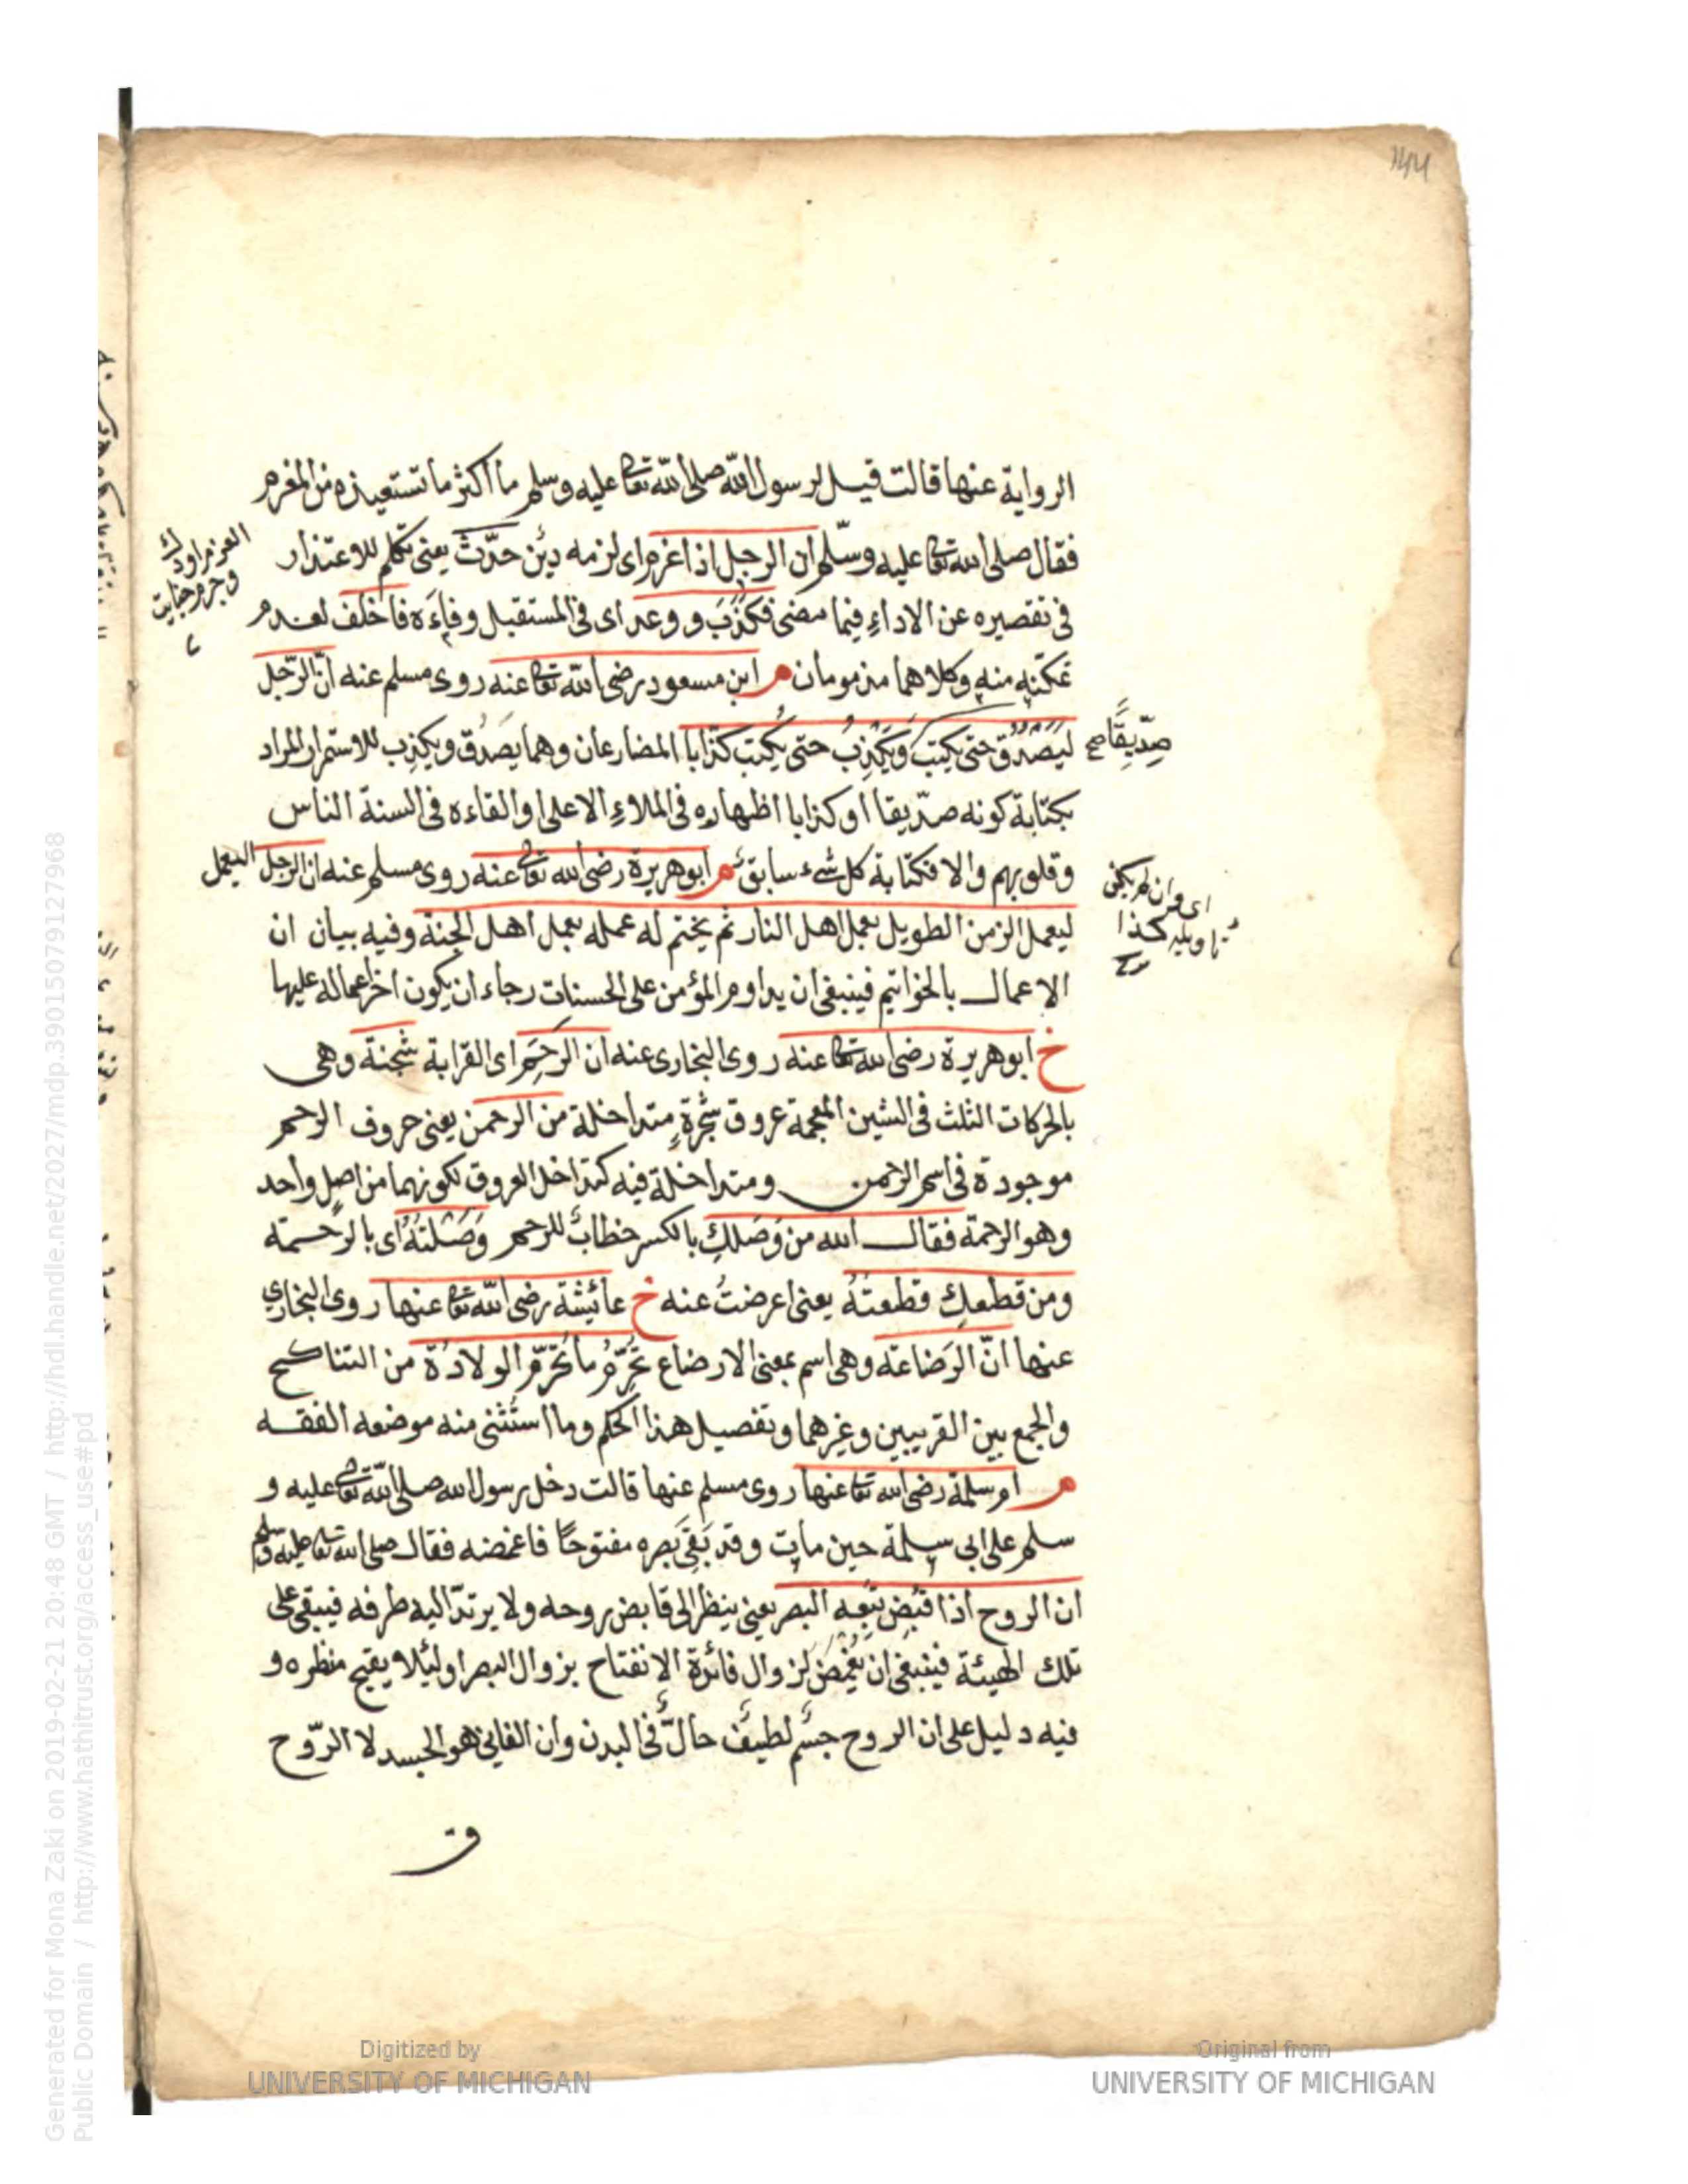 الرواية عنها قالت قيل لرسول الله صلى الله تعا عليه وسلم ما اكثر ما تستعيذه من المغرم
فقال صلى الله تعا عليه وسلم ان الرجل اذا غرم اى لزمه دين حدّث يعنى تكلم للاعتذار
فى تقصيره عن الاداء فيما مضى فكذب و وعد اى فى المستقبل وفاءَه فاخلف لعدم
تمكنه منه وكلاهما مذمومان م ابن مسعود رضى الله تعا عنه روى مسلم عنه انّ الرّجل
ليَصْدُق حتى يكتب ويَكْذِبُ حتى يُكتب كذابا المضارعان وهما يصدق ويكذب للاستمرار المراد
صِدّيقًا صح
بكتابة كونه صدّيقا او كذابا اظهاره فى الملاءِ الاعلى والقاءه فى السنة الناس
وقلوبهم والا فكتابة كل شىء سابق م ابو هريرة رضى الله تعا عنه روى مسلم عنه ان الرجل ليعمل
ليعمل الزمن الطويل بعمل اهل النار ثم يختم له عمله بعمل اهل الجنة وفيه بيان ان
الاعمال بالخواتيم فينبغى ان يداوم المؤمن على الحسنات رجاء ان يكون اخر اعماله عليها
خ ابو هريرة رضى الله تعا عنه روى البخارى عنه ان الرحم اى القرابة شجنة وهى
بالحركات الثلث فى الشين المعجمة عروق شجرةٍ متداخلة من الرحمن يعنى حروف الرحم
موجودة فى اسم الرحمن ومتداخلة فيه كتداخل العروق لكونهما من اصل واحد
وهو الرحمة فقال الله من وَصَلكِ بالكسر خطابٌ للرحم وَصَلْتُهُ اى بالرحمة
ومن قطعكِ قطعتُهُ يعنى اعرضتُ عنه خ عائشة رضى الله تعا عنها روى البخارى
عنها انّ الرَضاعة وهى اسم بمعنى الارضاع تُحَرِّمُ ما تُحَرِّم الولادة من التناكح
والجمع بين القريبين وغيرهما وتفصيل هذا الحكم وما استثنى منه موضعه الفقه
م ام سلمة رضى الله تعا عنها روى مسلم عنها قالت دخل رسول الله صلى الله تعا عليه و
سلم على ابى سلمة حين مات وقد بَقِىَ بَصره مفتوحًا فاغمضه فقال صلى الله تعا عليه وسلم
ان الروح اذا قبض تبعه البصر يعنى ينظر الى قابض روحه ولا يرتدّ اليه طرفه فيبقى على
تلك الهيئة فينبغى ان يُغمض لزوال فائدة الانفتاح بزوال البصر او لئلا يقبح منظره و
فيه دليل على ان الروح جسم لطيف حالٌّ فى البدن وان الفانى هو الجسد لا الرّوح
Generated for Mona Zaki on 2019-02-21 20:48 GMT / http://hdl.handle.net/2027/mdp.39015079127968
Public Domain / http://www.hathitrust.org/access_use#pd
Digitized by
UNIVERSITY OF MICHIGAN
Original from
UNIVERSITY OF MICHIGAN